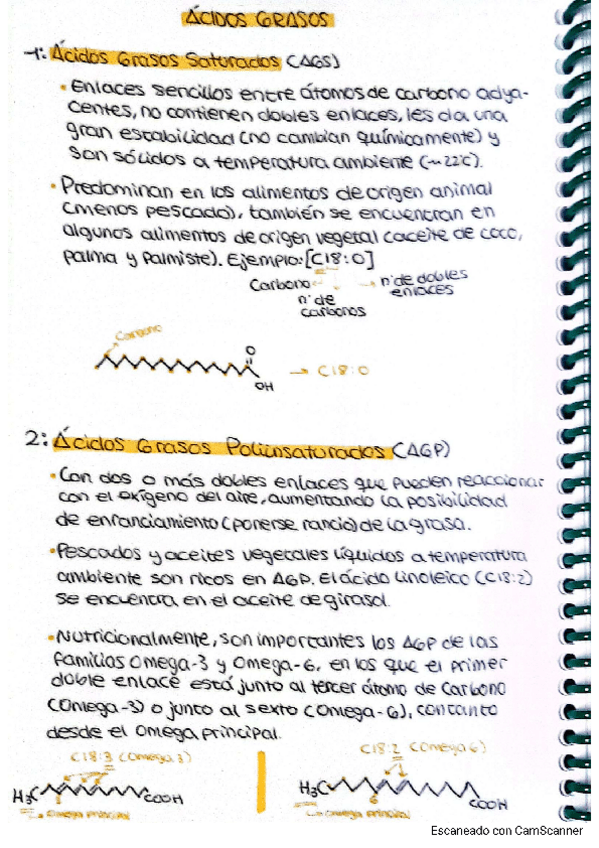 ÁCIDOS GRASOS
1: Ácidos Grasos Saturados (AGS)
• Enlaces sencillos entre átomos de carbono adya-
centes, no contienen dobles enlaces, les da una
gran estabilidad (no cambian químicamente) y
son sólidos a temperatura ambiente (~22°C).
• Predominan en los alimentos de origen animal
(menos pescado), también se encuentran en
algunos alimentos de origen vegetal (aceite de coco,
palma y palmiste). Ejemplo: [C18:0]
Carbono
n° de
carbonos
n° de dobles
enlaces
Carbono
O
OH
→ C18:0
2: Ácidos Grasos Poliinsaturados (AGP)
• Con dos o más dobles enlaces que pueden reaccionar
con el oxígeno del aire, aumentando la posibilidad
de enranciamiento (ponerse rancio) de la grasa.
• Pescados y aceites vegetales líquidos a temperatura
ambiente son ricos en AGP. El ácido linoleico (C18:2)
se encuentra en el aceite de girasol.
• Nutricionalmente, son importantes los AGP de las
familias Omega-3 y Omega-6, en los que el primer
doble enlace está junto al tercer átomo de carbono
(Omega-3) o junto al sexto (Omega-6), contanto
desde el omega principal.
C18:3 (Omega 3)
H3C
COOH
omega principal
C18:2 (Omega 6)
H3C
6
COOH
omega principal
Escaneado con CamScanner